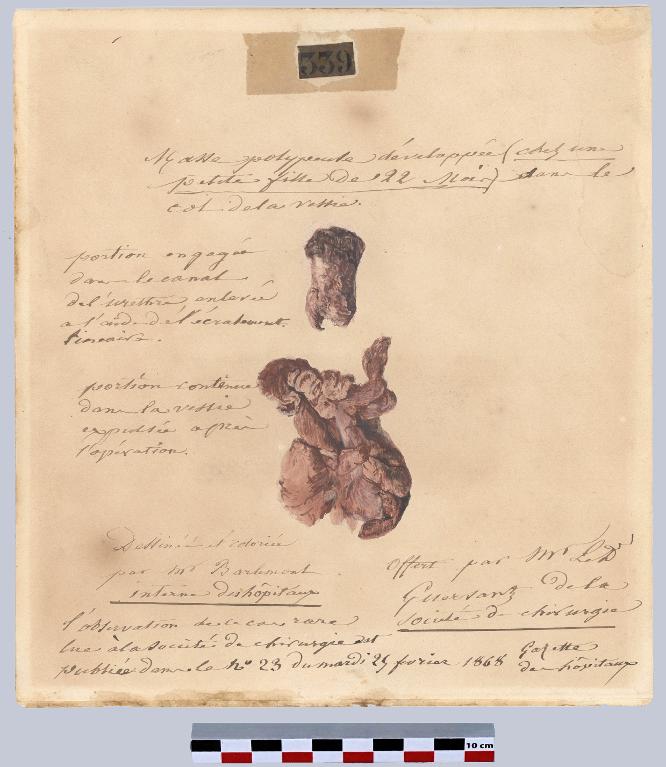 339
Masse polypeuse développée (chez une
petite fille de 22 Mois) dans le
col de la vessie.
portion engagée
dans le canal
de l'urethre, enlevée
a l'aide de l'écrasement
linéaire.
portion contenue
dans la vessie
expulsée après
l'opération.
Dessinée et coloriée
par Mr
interne des hôpitaux
Offert par Mr Le Dr
Guersant de la
Société de chirurgie
l'observation de ce cas rare
lue à la Société de chirurgie est
publiée dans le No 23 du mardi 25 fevrier 1868 Gazette
des hôpitaux
10 cm